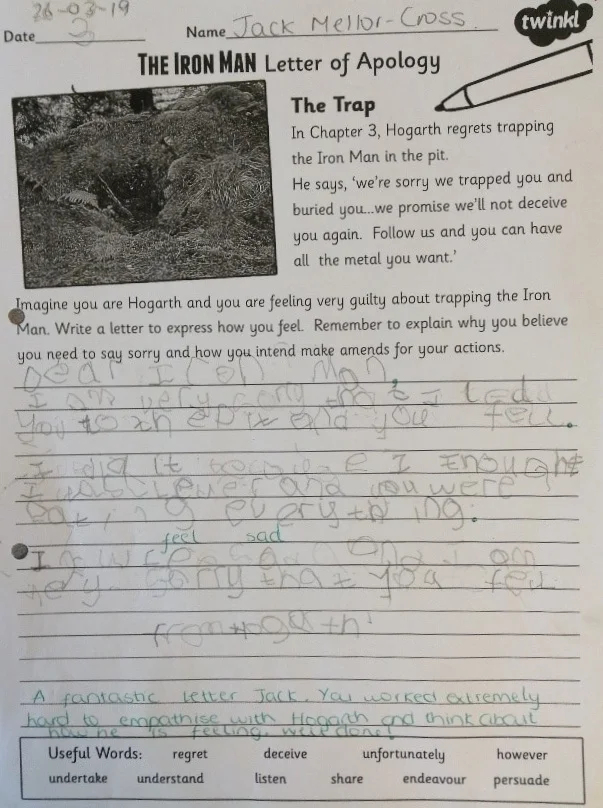 26-03-19
Date 3 Name Jack Mellor-Cross
twinkl
THE IRON MAN Letter of Apology
The Trap
In Chapter 3, Hogarth regrets trapping
the Iron Man in the pit.
He says, 'we're sorry we trapped you and
buried you...we promise we'll not deceive
you again. Follow us and you can have
all the metal you want.'
Imagine you are Hogarth and you are feeling very guilty about trapping the Iron
Man. Write a letter to express how you feel. Remember to explain why you believe
you need to say sorry and how you intend make amends for your actions.
Dear Iron Man,
I am very sorry that I
you to and you fell.
I did it I
I was clever and you were
eating everything.
feel sad
I and I am
sorry that you fell
from Hogarth
A fantastic letter Jack. You worked extremely
hard to empathise with Hogarth and think about
how he is feeling. well done!
Useful Words: regret deceive unfortunately however
undertake understand listen share endeavour persuade